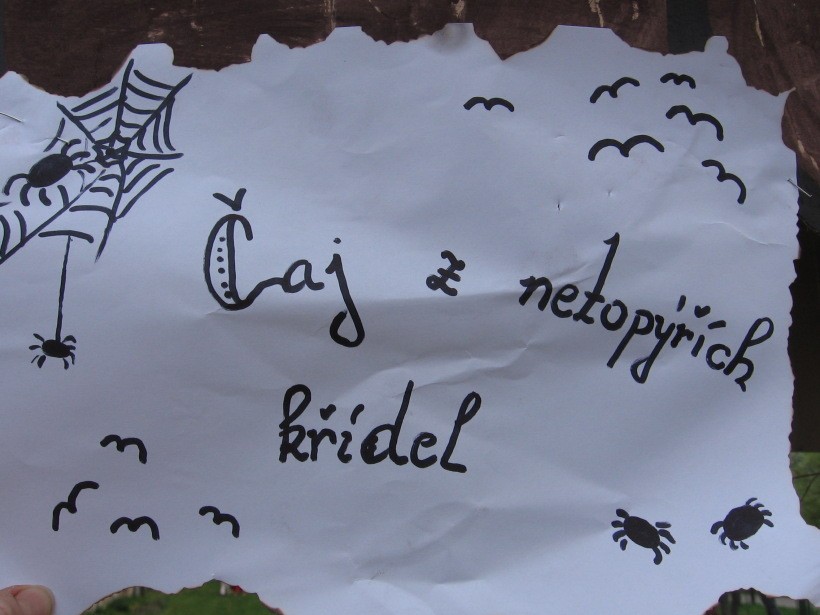 Čaj z netopýřích
křídel